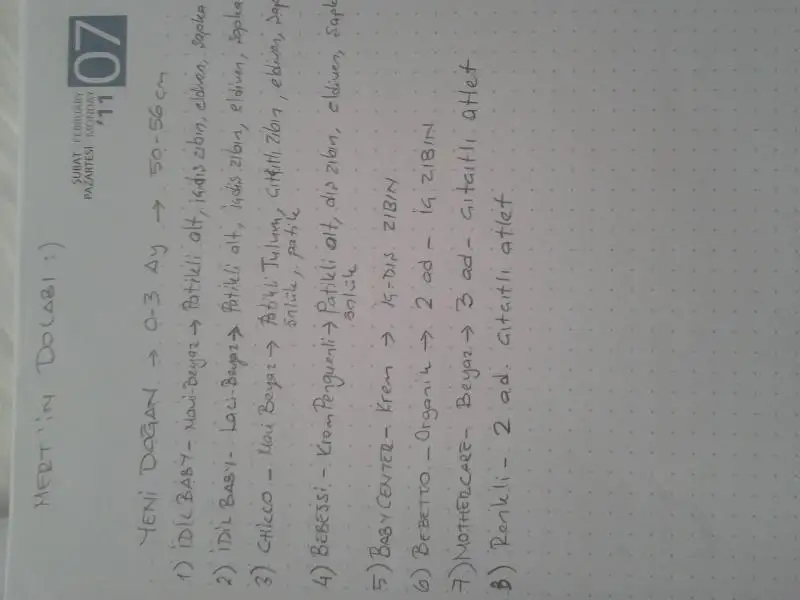 ŞUBAT FEBRUARY
PAZARTESİ MONDAY
'11
07
MERT'İN DOLABI :)
YENİ DOĞAN → 0-3 Ay → 50-56 cm
1) İDİL BABY - Mavi-Beyaz → Patikli alt, iç dış zıbın, eldiven, şapka
2) İDİL BABY - Laci-Beyaz → Patikli alt, iç dış zıbın, eldiven, şapka
3) CHICCO - Mavi Beyaz → Patikli Tulum, Çıtçıtlı zıbın, eldiven, şap
önlük, patik
4) BEBESSİ - Krem Penguenli → Patikli alt, dış zıbın, eldiven, şapk
önlük
5) BABYCENTER - Krem → İÇ-DIŞ ZIBIN
6) BEBETTO - Organik → 2 ad - İÇ ZIBIN
7) MOTHERCARE - Beyaz → 3 ad - Çıtçıtlı atlet
8) Renkli - 2 ad. Çıtçıtlı atlet